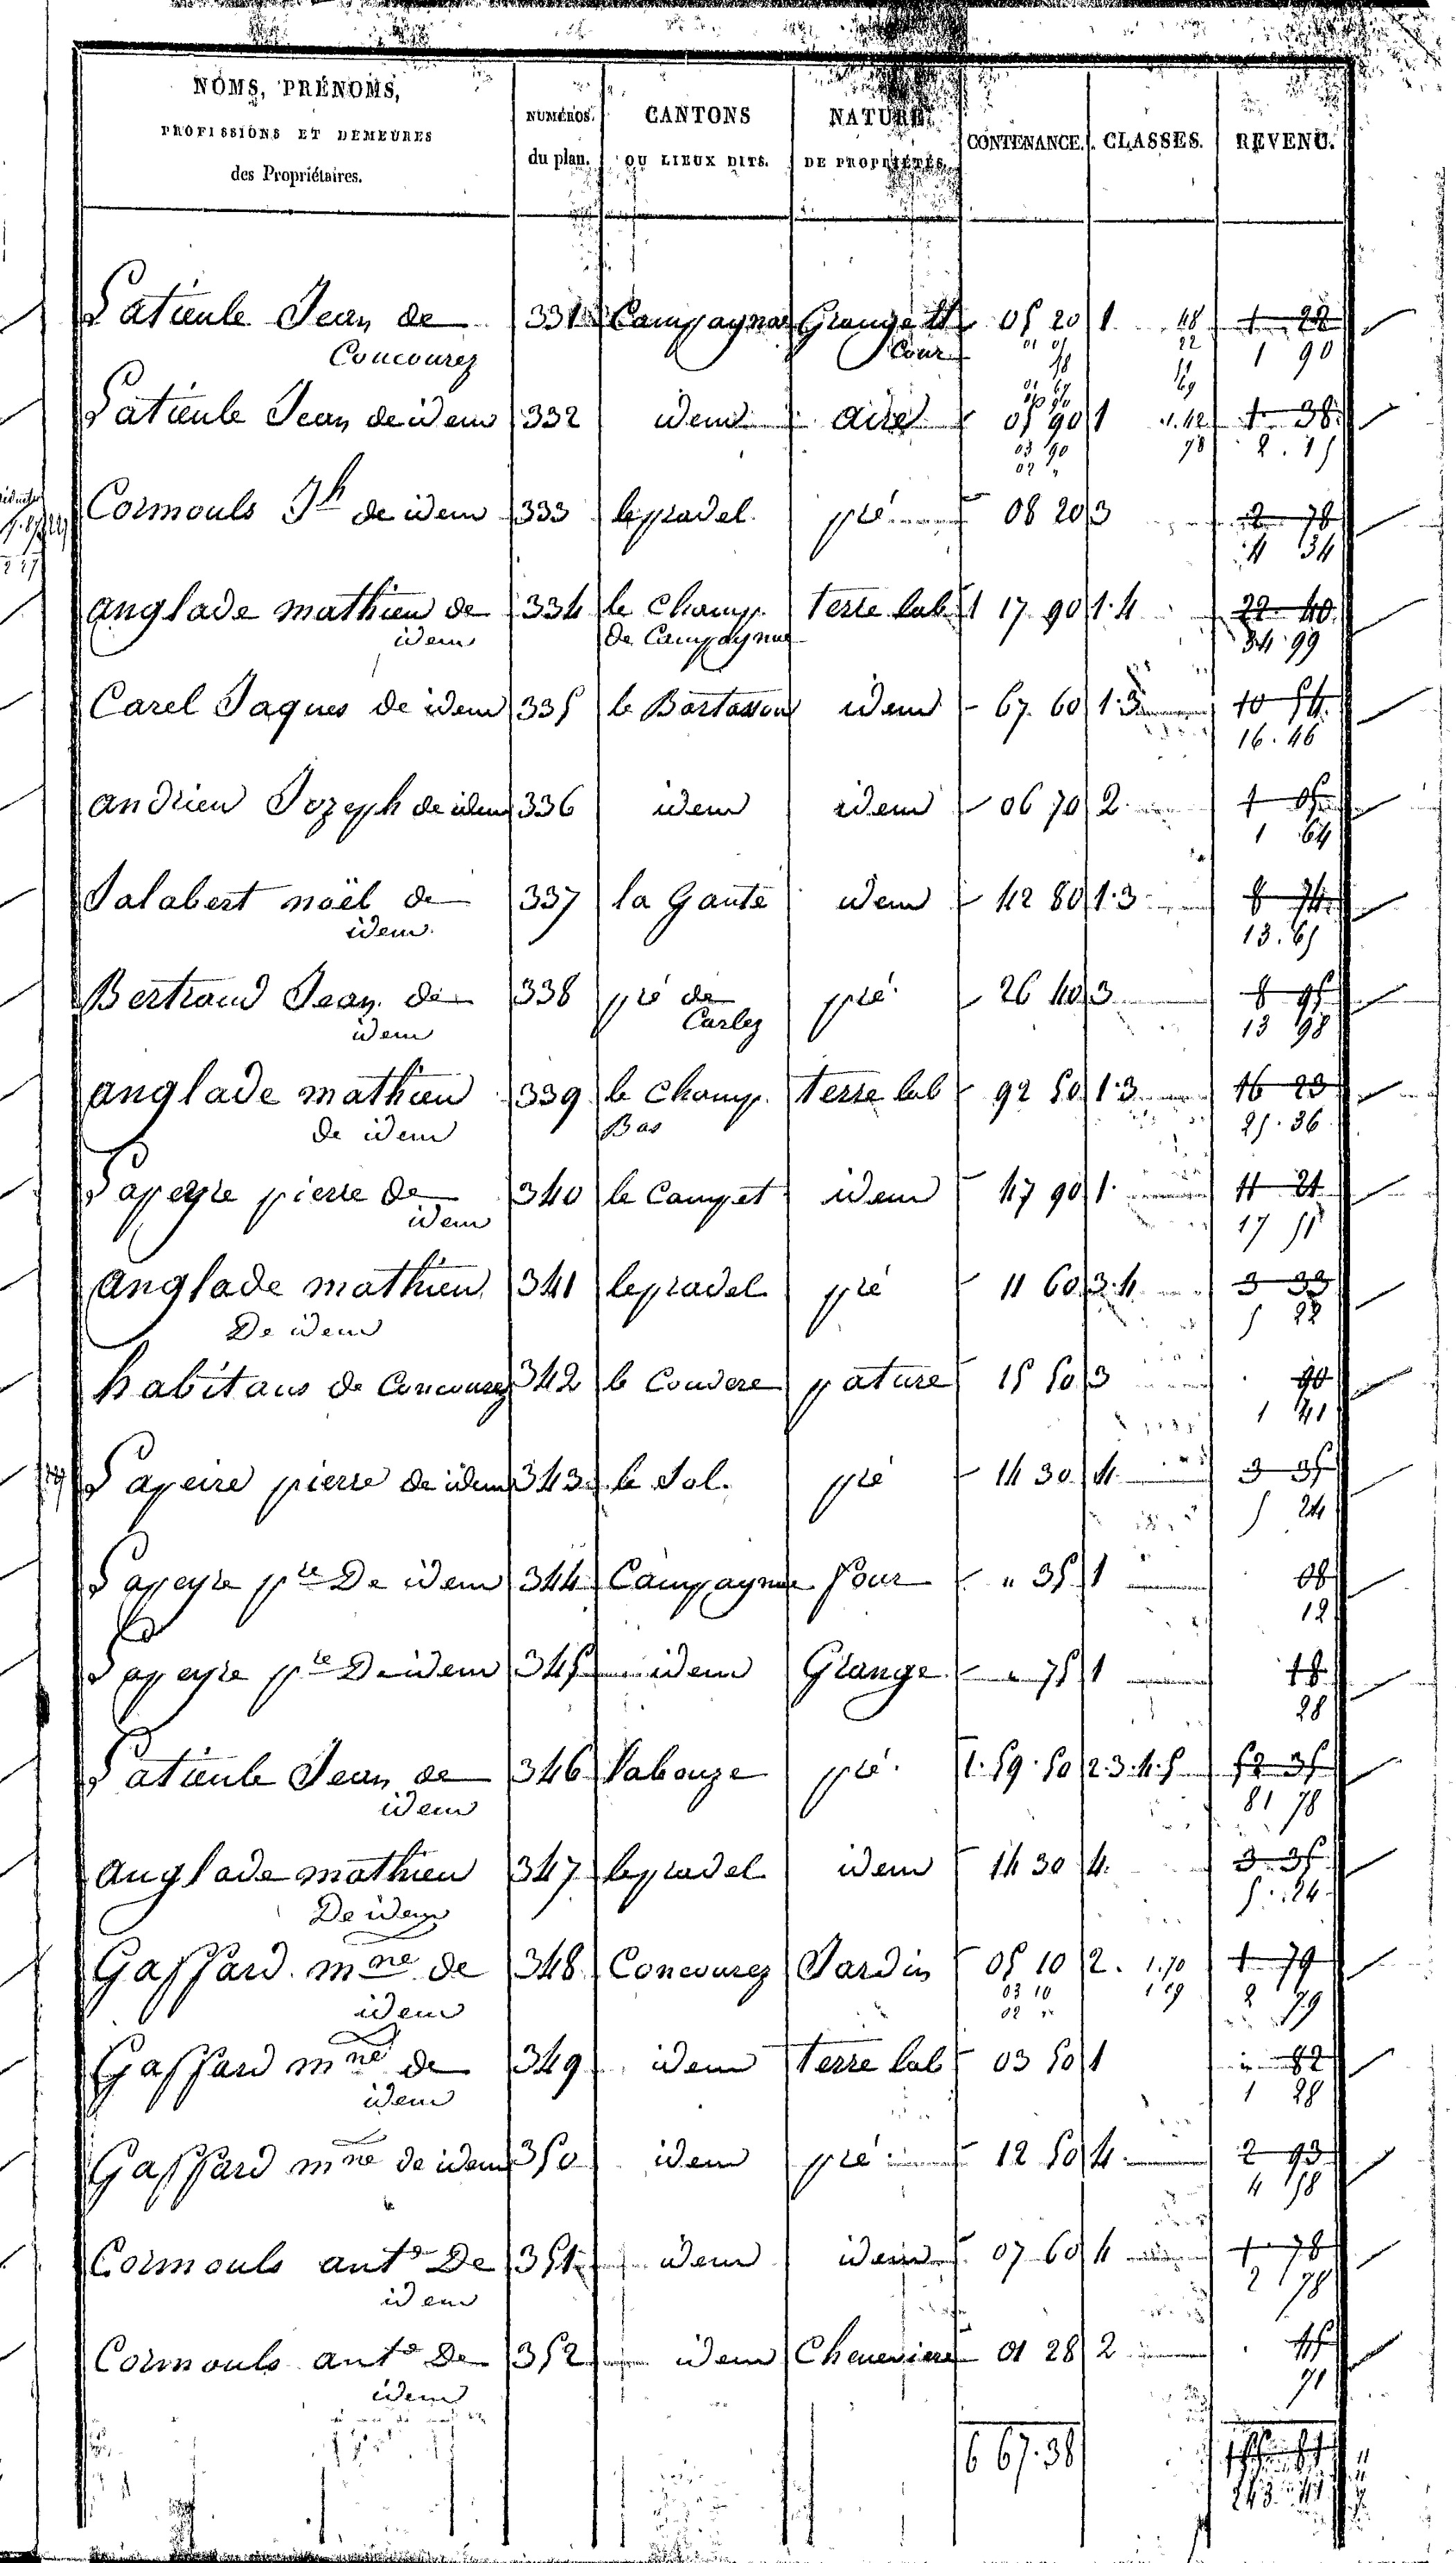 NOMS, PRÉNOMS, PROFESSIONS ET DEMEURES des Propriétaires. NUMÉROS. du plan. CANTONS OU LIEUX DITS. NATURE DE PROPRIÉTÉS. CONTENANCE. CLASSES. REVENU.
Latieule Jean de 331 Campaynac Grange et 05 20 1 48 1 22
Concourez Cour 01 05 22 1 90
Latieule Jean de idem 332 idem aire 05 90 1 1.42 1 38
03 90 78 2.15
02 "
Cormouls Jh de idem 333 lepradel pré 08 20 3 2 78
4 34
anglade mathieu de 334 le champ terre lab 1 17 90 1.4 22 40
idem de Campaynac 34 99
Carel Jaques de idem 335 le Bartassou idem 67 60 1.3 10 54
16.46
andrieu Jozeph de idem 336 idem idem 06 70 2 1 05
1 64
Jalabert noël de 337 la Gante idem 42 80 1.3 8 74
idem 13.65
Bertrand Jean de 338 pré de pré 26 40 3 8 95
idem Carlez 13 98
anglade mathieu 339 le champ terre lab 92 50 1.3 16 23
de idem Bas 25.36
Lapeyre pierre de 340 le Campet idem 47 90 1 11 21
idem 17 51
anglade mathieu 341 lepradel pré 11 60 3.4 3 33
De idem 5 22
habitans de Concourez 342 le Couderc pature 15 50 3 90
1 41
Lapeire pierre de idem 343 le Sol pré 14 30 4 3 35
5 24
Lapeyre pre De idem 344 Campaynac four " 35 1 08
12
Lapeyre pre De idem 345 idem Grange " 75 1 18
28
Latieule Jean de 346 Valouze pré 1.59.50 2.3.4.5 52 35
idem 81 78
anglade mathieu 347 lepradel idem 14 30 4 3.35
De idem 5.24
Gaffard mne de 348 Concourez Jardin 05 10 2. 1.70 1 79
idem 03 10 1 09 2 79
02 "
Gaffard mne de 349 idem terre lab 03 50 1 " 82
idem 1 28
Gaffard mne de idem 350 idem pré 12 50 4 2 93
4 58
Cormouls anto De 351 idem idem 07 60 4 1 78
idem 2 78
Cormouls anto De 352 idem Cheneviere 01 28 2 45
idem 71
6 67.38 155 81
243 41